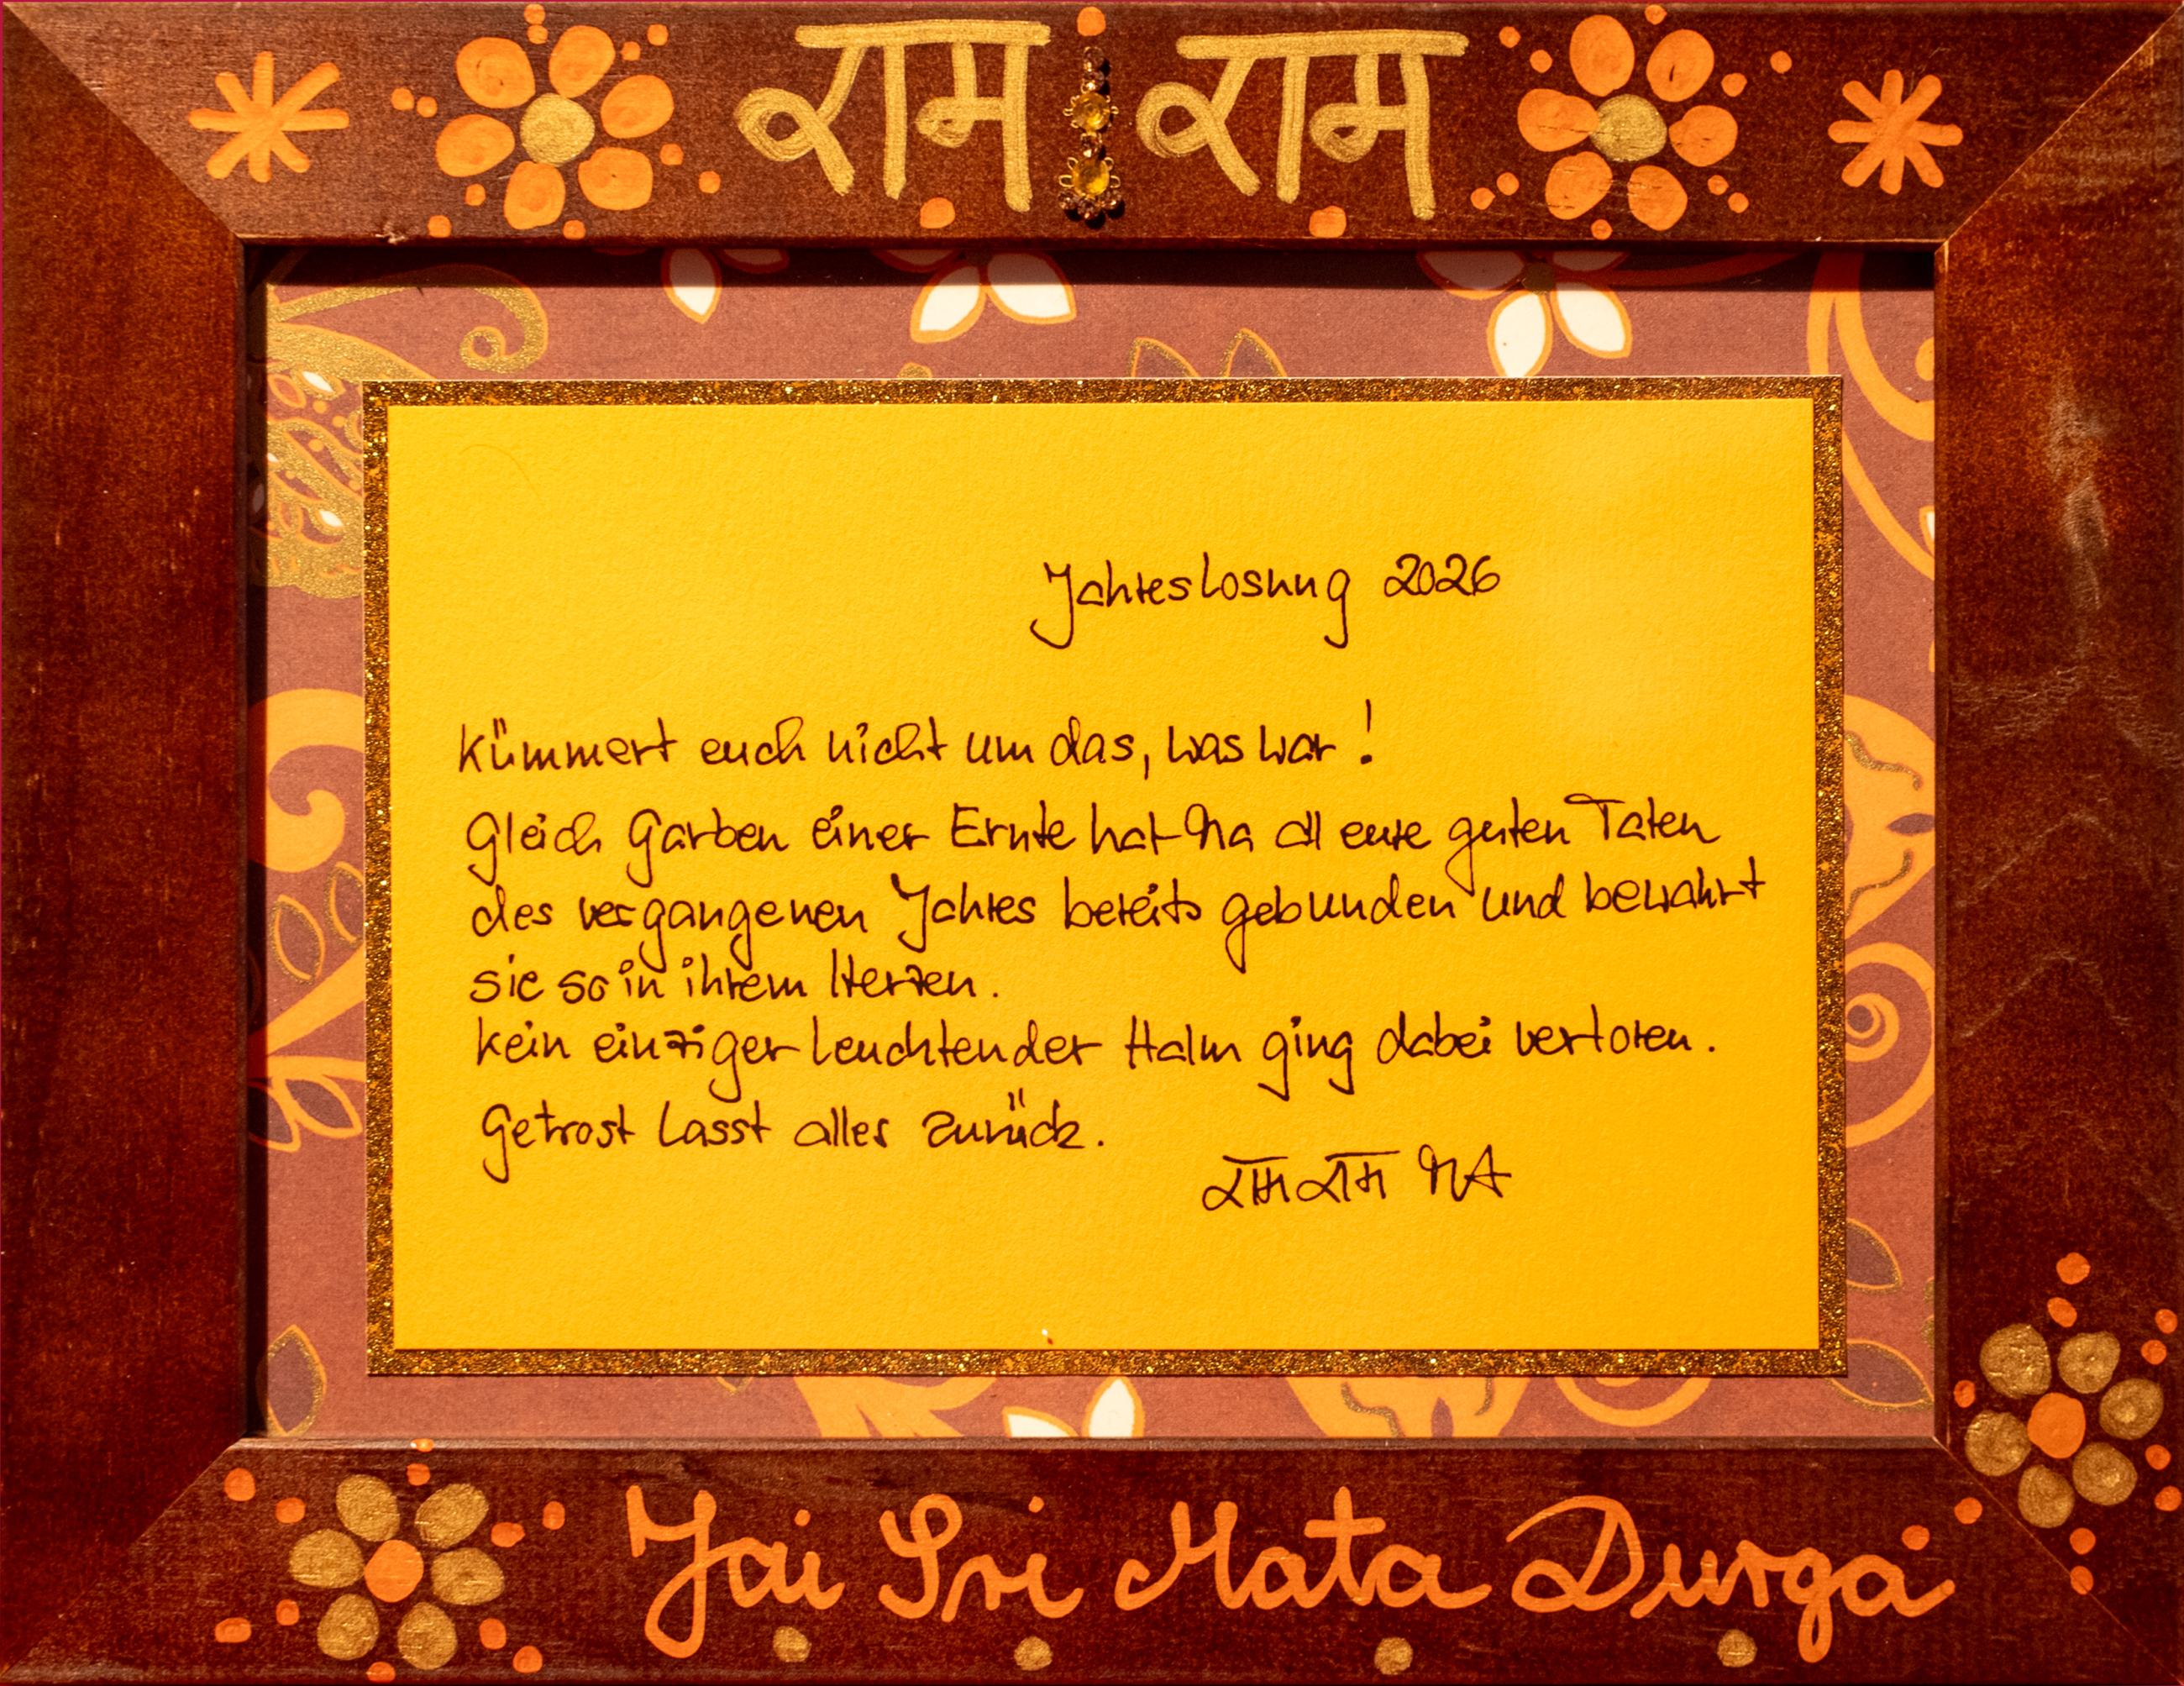 राम राम
Jahreslosung 2026
Kümmert euch nicht um das, was war!
Gleich Garben einer Ernte hat Ma all eure guten Taten
des vergangenen Jahres bereits gebunden und bewahrt
sie so in ihrem Herzen.
Kein einziger leuchtender Halm ging dabei verloren.
Getrost lasst alles zurück.
राम राम MA
Jai Sri Mata Durga